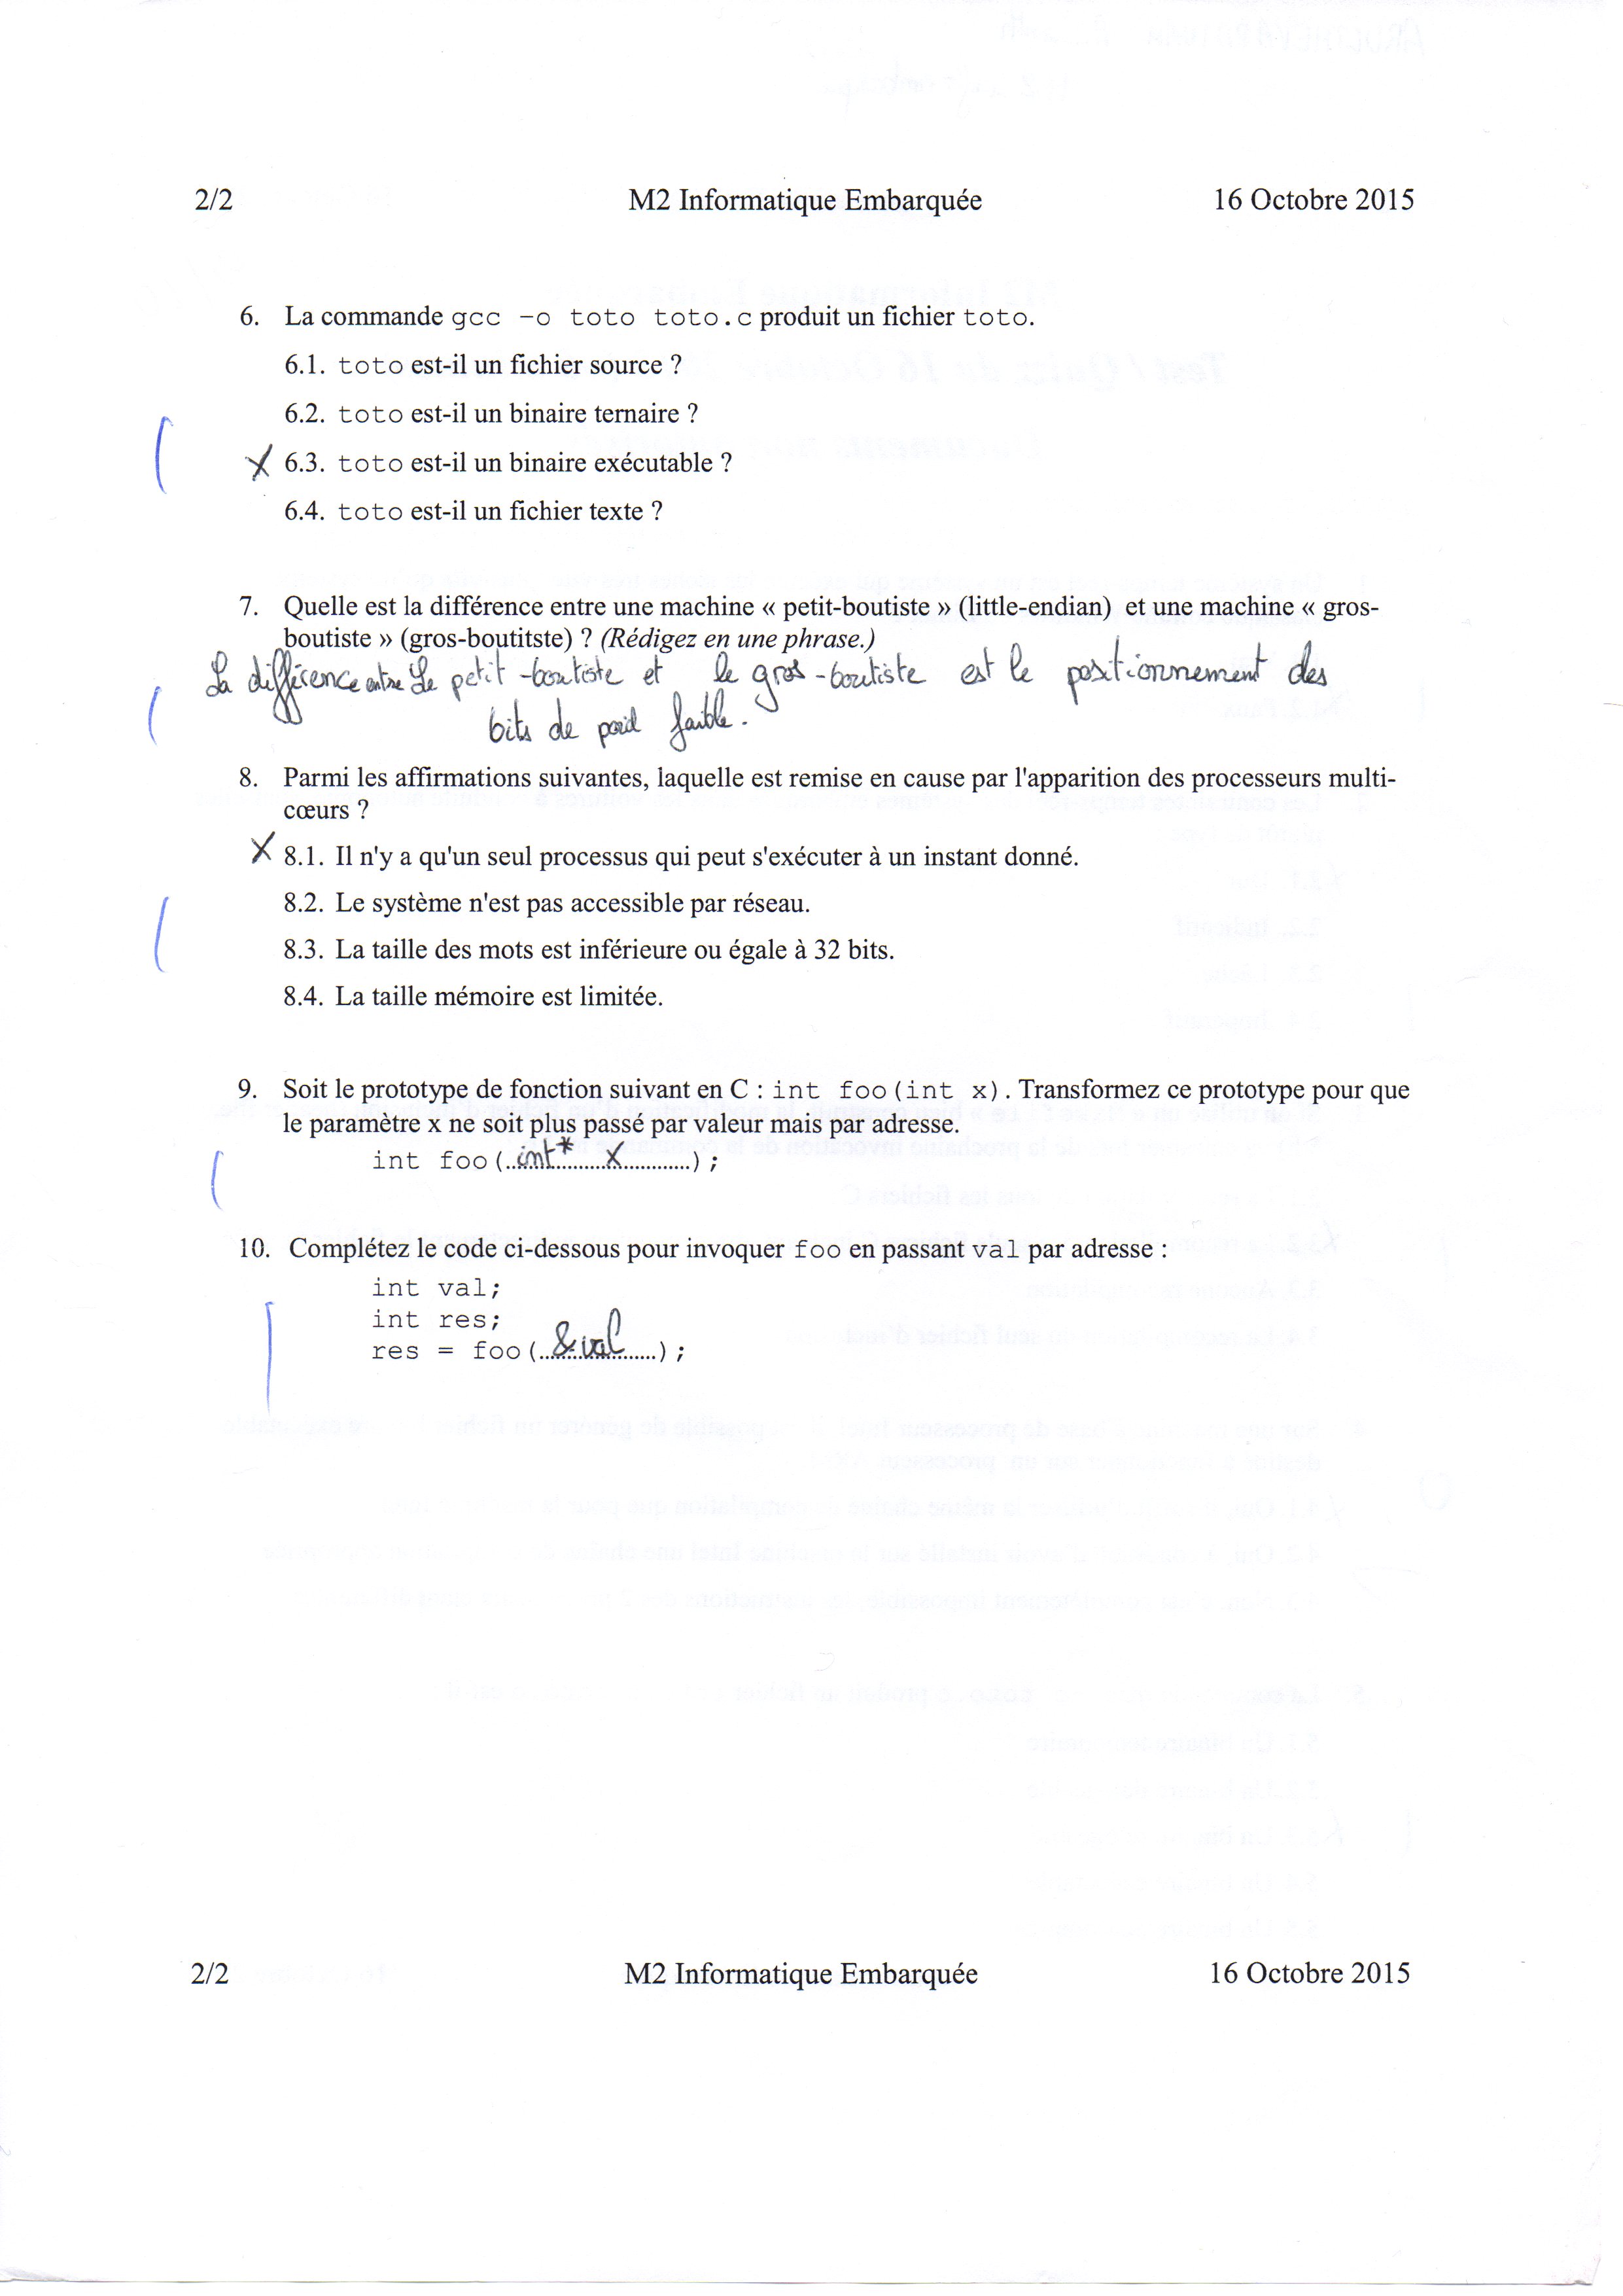 2/2 M2 Informatique Embarquée 16 Octobre 2015
6. La commande gcc -o toto toto.c produit un fichier toto.
6.1. toto est-il un fichier source ?
6.2. toto est-il un binaire ternaire ?
X 6.3. toto est-il un binaire exécutable ?
6.4. toto est-il un fichier texte ?
7. Quelle est la différence entre une machine « petit-boutiste » (little-endian) et une machine « gros-
boutiste » (gros-boutitste) ? (Rédigez en une phrase.)
La différence entre le petit-boutiste et le gros-boutiste est le positionnement des
bits de poid faible.
8. Parmi les affirmations suivantes, laquelle est remise en cause par l'apparition des processeurs multi-
cœurs ?
X 8.1. Il n'y a qu'un seul processus qui peut s'exécuter à un instant donné.
8.2. Le système n'est pas accessible par réseau.
8.3. La taille des mots est inférieure ou égale à 32 bits.
8.4. La taille mémoire est limitée.
9. Soit le prototype de fonction suivant en C : int foo(int x). Transformez ce prototype pour que
le paramètre x ne soit plus passé par valeur mais par adresse.
int foo(..int*......x............);
10. Complétez le code ci-dessous pour invoquer foo en passant val par adresse :
int val;
int res;
res = foo(..&val.....);
2/2 M2 Informatique Embarquée 16 Octobre 2015